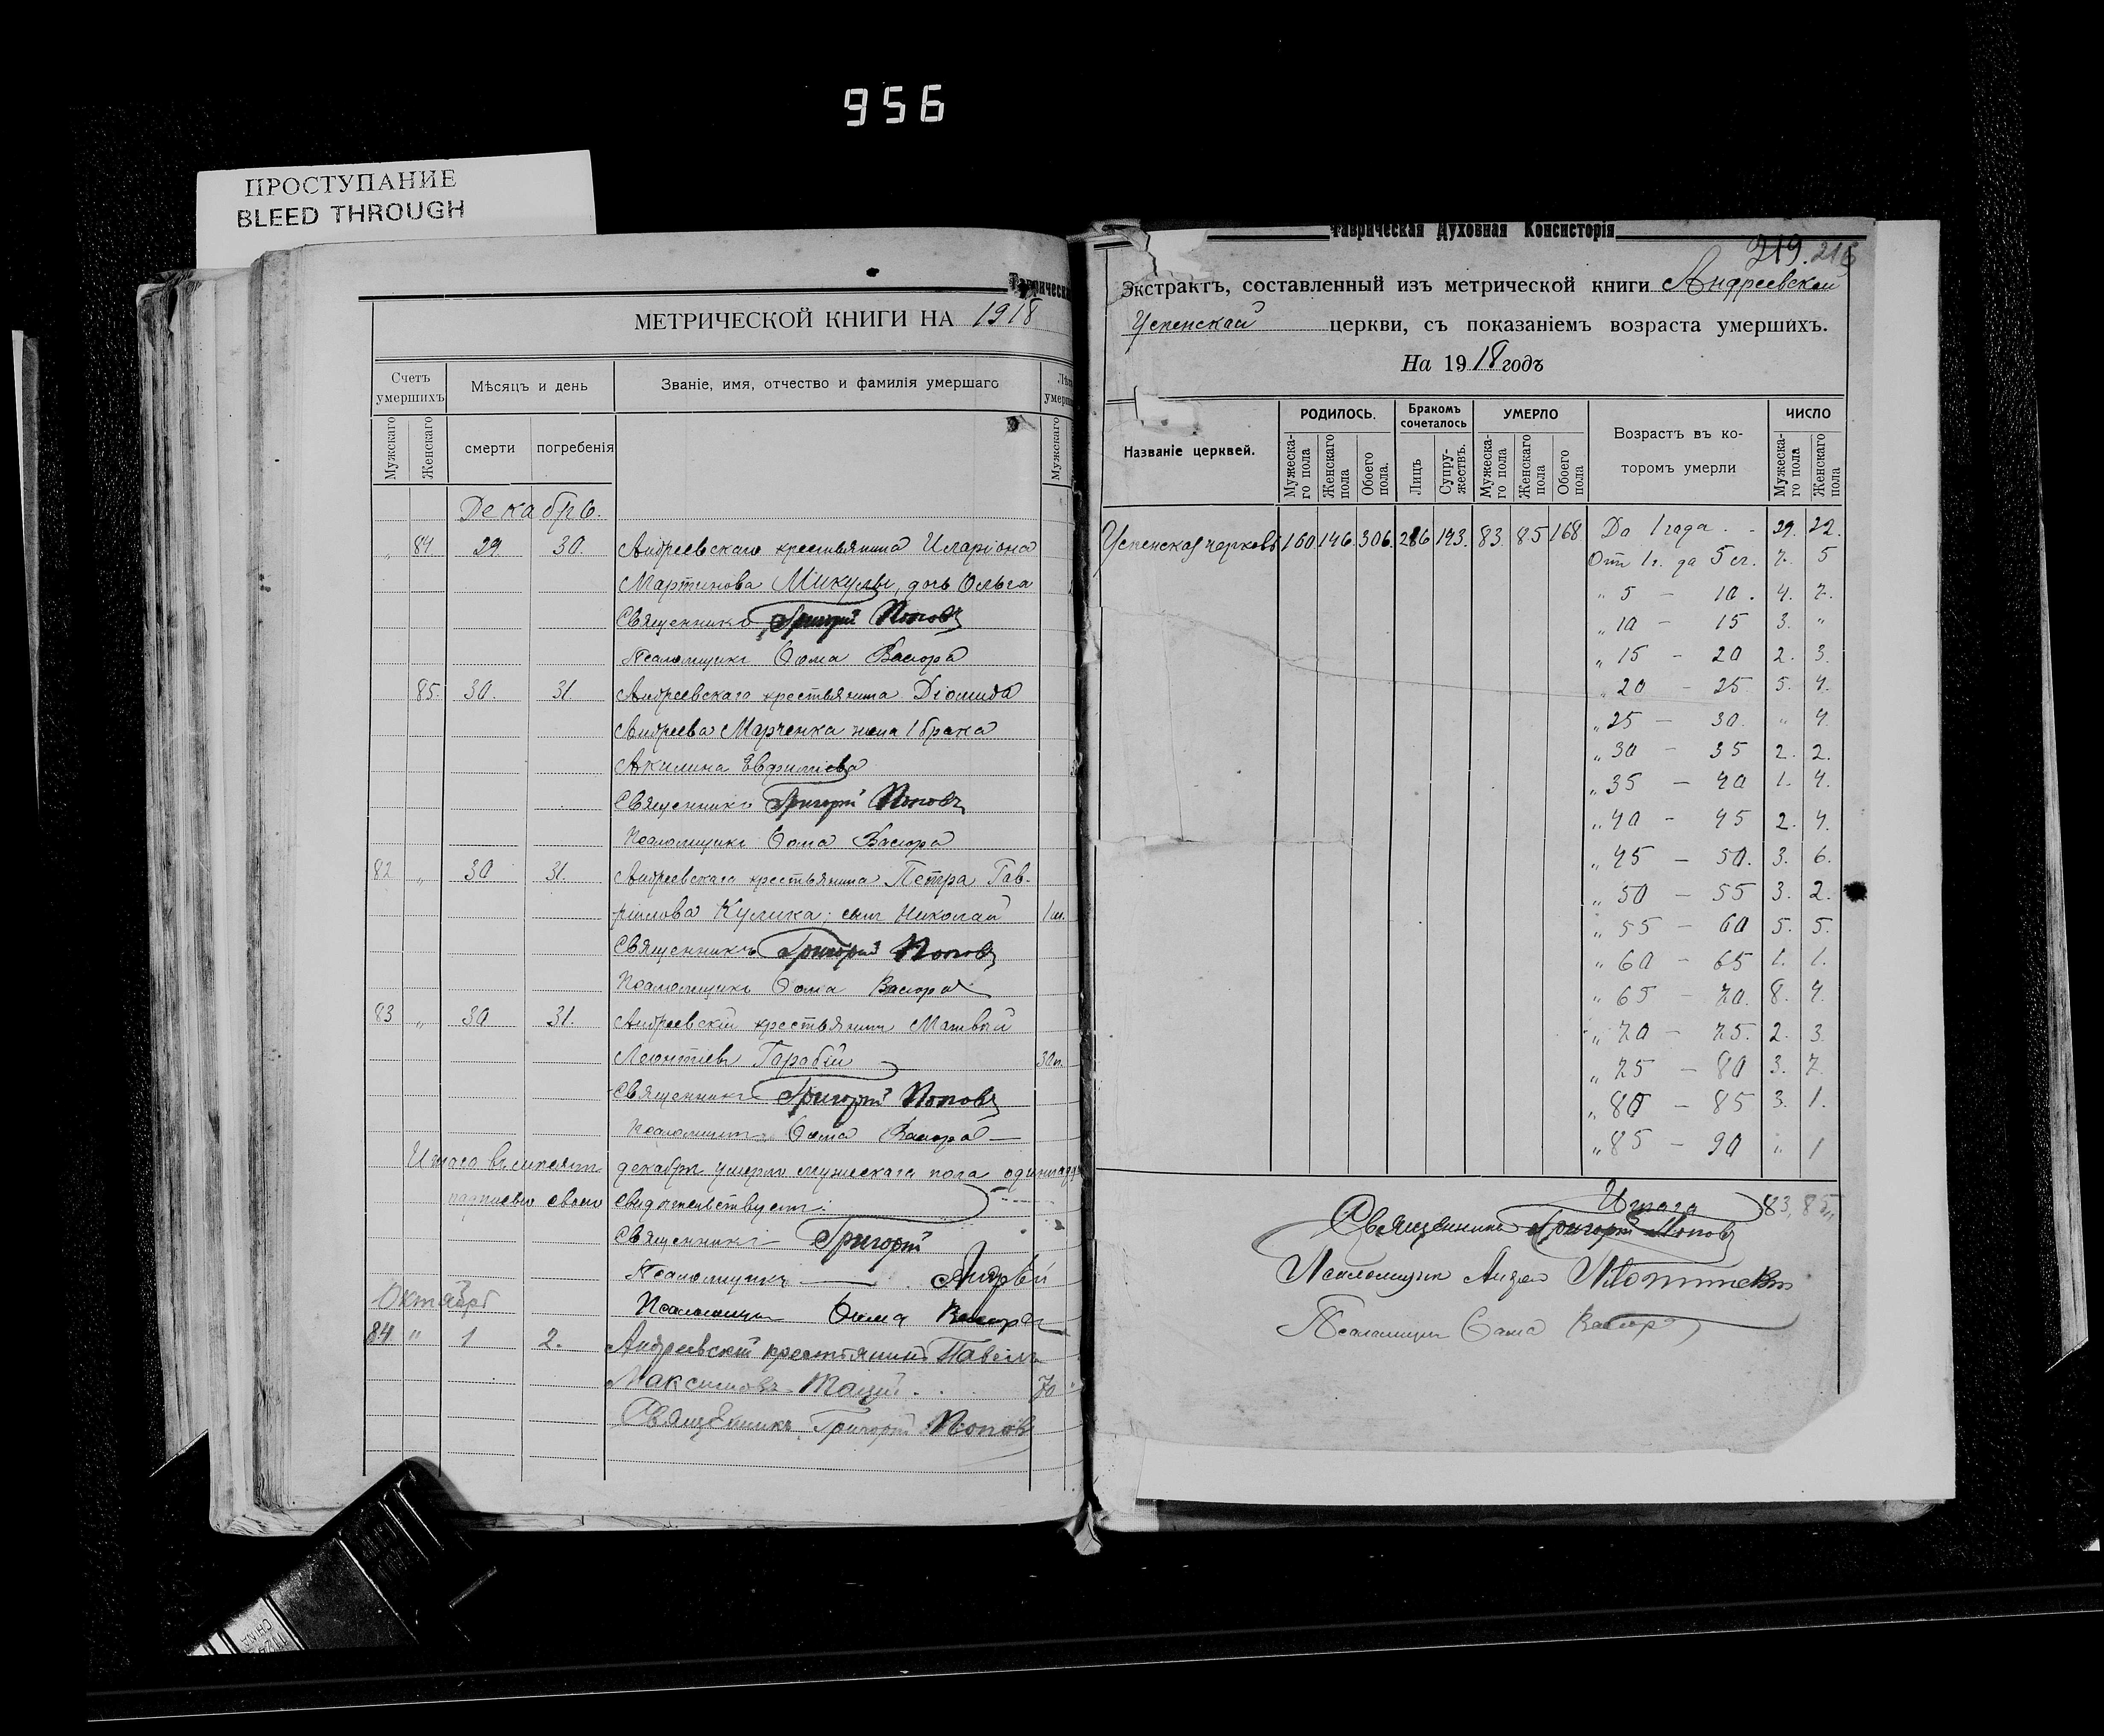 956
ПРОСТУПАНИЕ
BLEED THROUGH
МЕТРИЧЕСКОЙ КНИГИ НА 1918
Счетъ умершихъ
Мѣсяцъ и день
Званіе, имя, отчество и фамилія умершаго
Мужскаго
Женскаго
смерти
погребенія
Мужскаго
Декабрь.
„ 84 29 30. Андреевскаго крестьянина Иларіона
Мартинова Микулы, дочь Ольга
Священникъ Григорій Поповъ
Псаломщикъ Ѳома
85. 30. 31. Андреевскаго крестьянина Діомида
Андреева Марченка жена 1 брака
Акилина Евфиміева
Священникъ Григорій Поповъ
Псаломщикъ Ѳома
82 „ 30 31. Андреевскаго крестьянина Петра Гав-
ріилова Кулика, сынъ Николай
Священникъ Григорій Поповъ
Псаломщикъ Ѳома
83 „ 30 31. Андреевскій крестьянинъ Матвѣй
Леонтіевъ
Священникъ Григорій Поповъ
Псаломщикъ Ѳома
Итого въ декабрѣ умерло мужескаго пола
свидѣтельствуемъ:
Священникъ Григорій
Псаломщикъ Андрей
Псаломщикъ Ѳома
Октябрь
84 „ 1 2. Андреевскій крестьянинъ Павелъ
Максимовъ 70
Священникъ Григорій Поповъ
Таврическая Духовная Консисторія
219. 216
Экстрактъ, составленный изъ метрической книги Андреевской
Успенской церкви, съ показаніемъ возраста умершихъ.
На 1918 годъ
Названіе церквей.
РОДИЛОСЬ.
Бракомъ сочеталось
УМЕРЛО
Возрастъ въ ко-
торомъ умерли
ЧИСЛО
Мужеска-го пола
Женскаго пола
Обоего пола.
Лицъ
Супру-жествъ.
Мужеска-го пола
Женскаго пола
Обоего пола
Мужеска-го пола
Женскаго пола
Успенская церковь 160. 146. 306. 286 143. 83. 85 168 До 1 года - 29. 22.
От 1 г. до 5 л. 7. 5
„ 5 - 10. 4. 7.
„ 10 - 15 3. „
„ 15 - 20 2. 3.
„ 20 - 25 5. 4.
„ 25 - 30. „ 4
„ 30 - 35 2. 2.
„ 35 - 40 1. 4.
„ 40 - 45 2. 4.
„ 45 - 50. 3. 6.
„ 50 - 55 3. 2.
„ 55 - 60 5. 5.
„ 60 - 65 1. 1.
„ 65 - 70. 8. 4.
„ 70 - 75. 2. 3.
„ 75 - 80 3. 7.
„ 80 - 85 3. 1.
„ 85 - 90 „ 1
Итого 83, 85
Священникъ Григорій Поповъ
Псаломщикъ Андрей
Псаломщикъ Ѳома